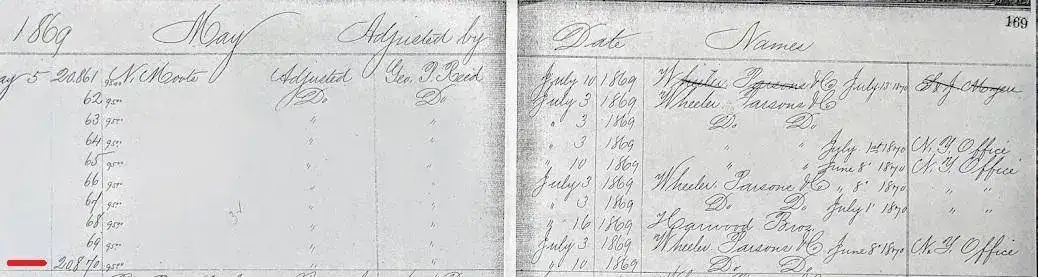 169
1869 May Adjusted by Date Names
May 5 20861 N. Moore Adjusted Geo. P. Reed July 10 1869 Wheeler Parsons & C July 13 1870
62 Do Do July 3 1869 Wheeler Parsons & C
63 " " " 3 1869 Do Do
64 " " " 3 1869 " " July 1st 1870 N. Y. Office
65 " " " 10 1869 " " June 8" 1870 N. Y. Office
66 " " July 3 1869 Wheeler Parsons & C " 8" 1870 " "
67 " " " 3 1869 Do Do July 1" 1870 " "
68 " " " 16 1869 Harwood Bros
69 " " July 3 1869 Wheeler Parsons & C June 8" 1870 N. Y. Office
20870 " " " 10 1869 Do Do